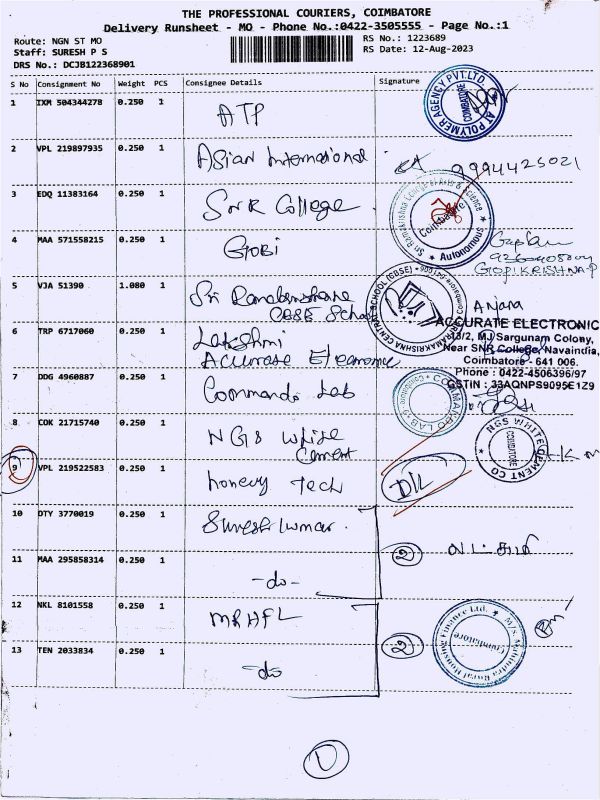 THE PROFESSIONAL COURIERS, COIMBATORE
Delivery Runsheet - MO - Phone No.:0422-3505555 - Page No.:1
Route: NGN ST MO
Staff: SURESH P S
DRS No.: DCJB122368901
RS No.: 1223689
RS Date: 12-Aug-2023
S No Consignment No Weight PCS Consignee Details Signature
1 IXM 504344278 0.250 1 ATP
AT POLYMER AGENCY PVT.LTD. COIMBATORE
2 VPL 219897935 0.250 1 Asian International 9994425021
3 EDQ 11383164 0.250 1 SNR College
Sri Ramakrishna College of Arts & Science Coimbatore Autonomous
4 MAA 571558215 0.250 1 Gobi
GOPIKRISHNA.P
5 VJA 51390 1.080 1 Sri Ramakrishana
CBSE School
Anjana
6 TRP 6717060 0.250 1 Lakshmi
Accurate Electronics
ACCURATE ELECTRONIC
3/2, MJ Sargunam Colony,
Near SNR College, Navaindia,
Coimbatore - 641 006.
Phone : 0422-4506396/97
GSTIN : 33AQNPS9095E1Z9
7 DDG 4960887 0.250 1 Commando Lab
COMMANDO LAB
8 COK 21715740 0.250 1 NGS White
Cement
NGS WHITE CEMENT CO COIMBATORE
9 VPL 219522583 0.250 1 honevy Tech DL
10 DTY 3770019 0.250 1 Suresh kumar.
11 MAA 295858314 0.250 1 -do- 2
12 NKL 8101558 0.250 1 MRHFL
2
M/s. Mahindra Rural Housing Finance Ltd. Coimbatore
13 TEN 2033834 0.250 1 do